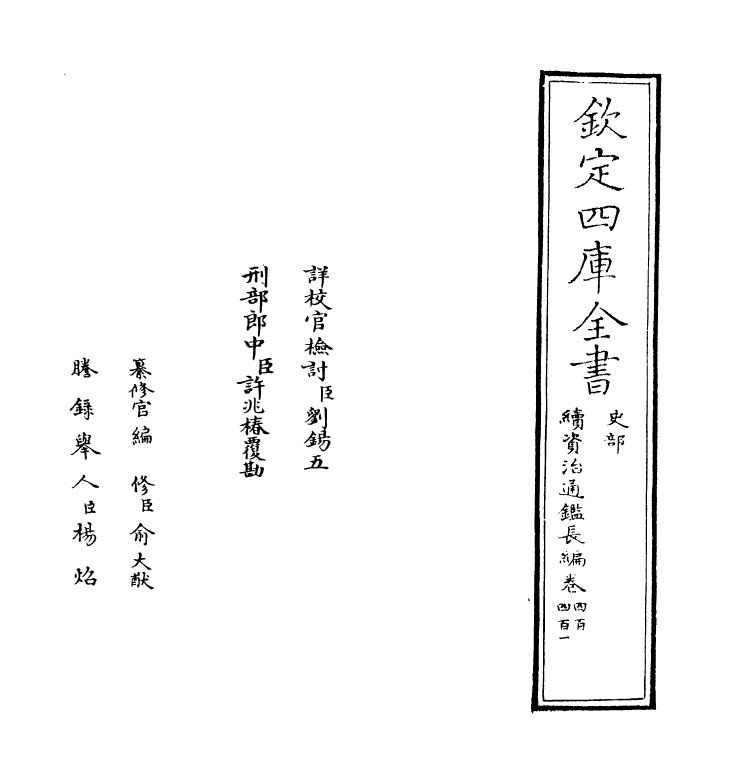 欽定四庫全書
史部
續資治通鑑長編卷四百
四百一
詳校官檢討臣劉錫五
刑部郎中臣許兆椿覆勘
纂修官編修臣俞大猷
謄錄舉人臣楊焰